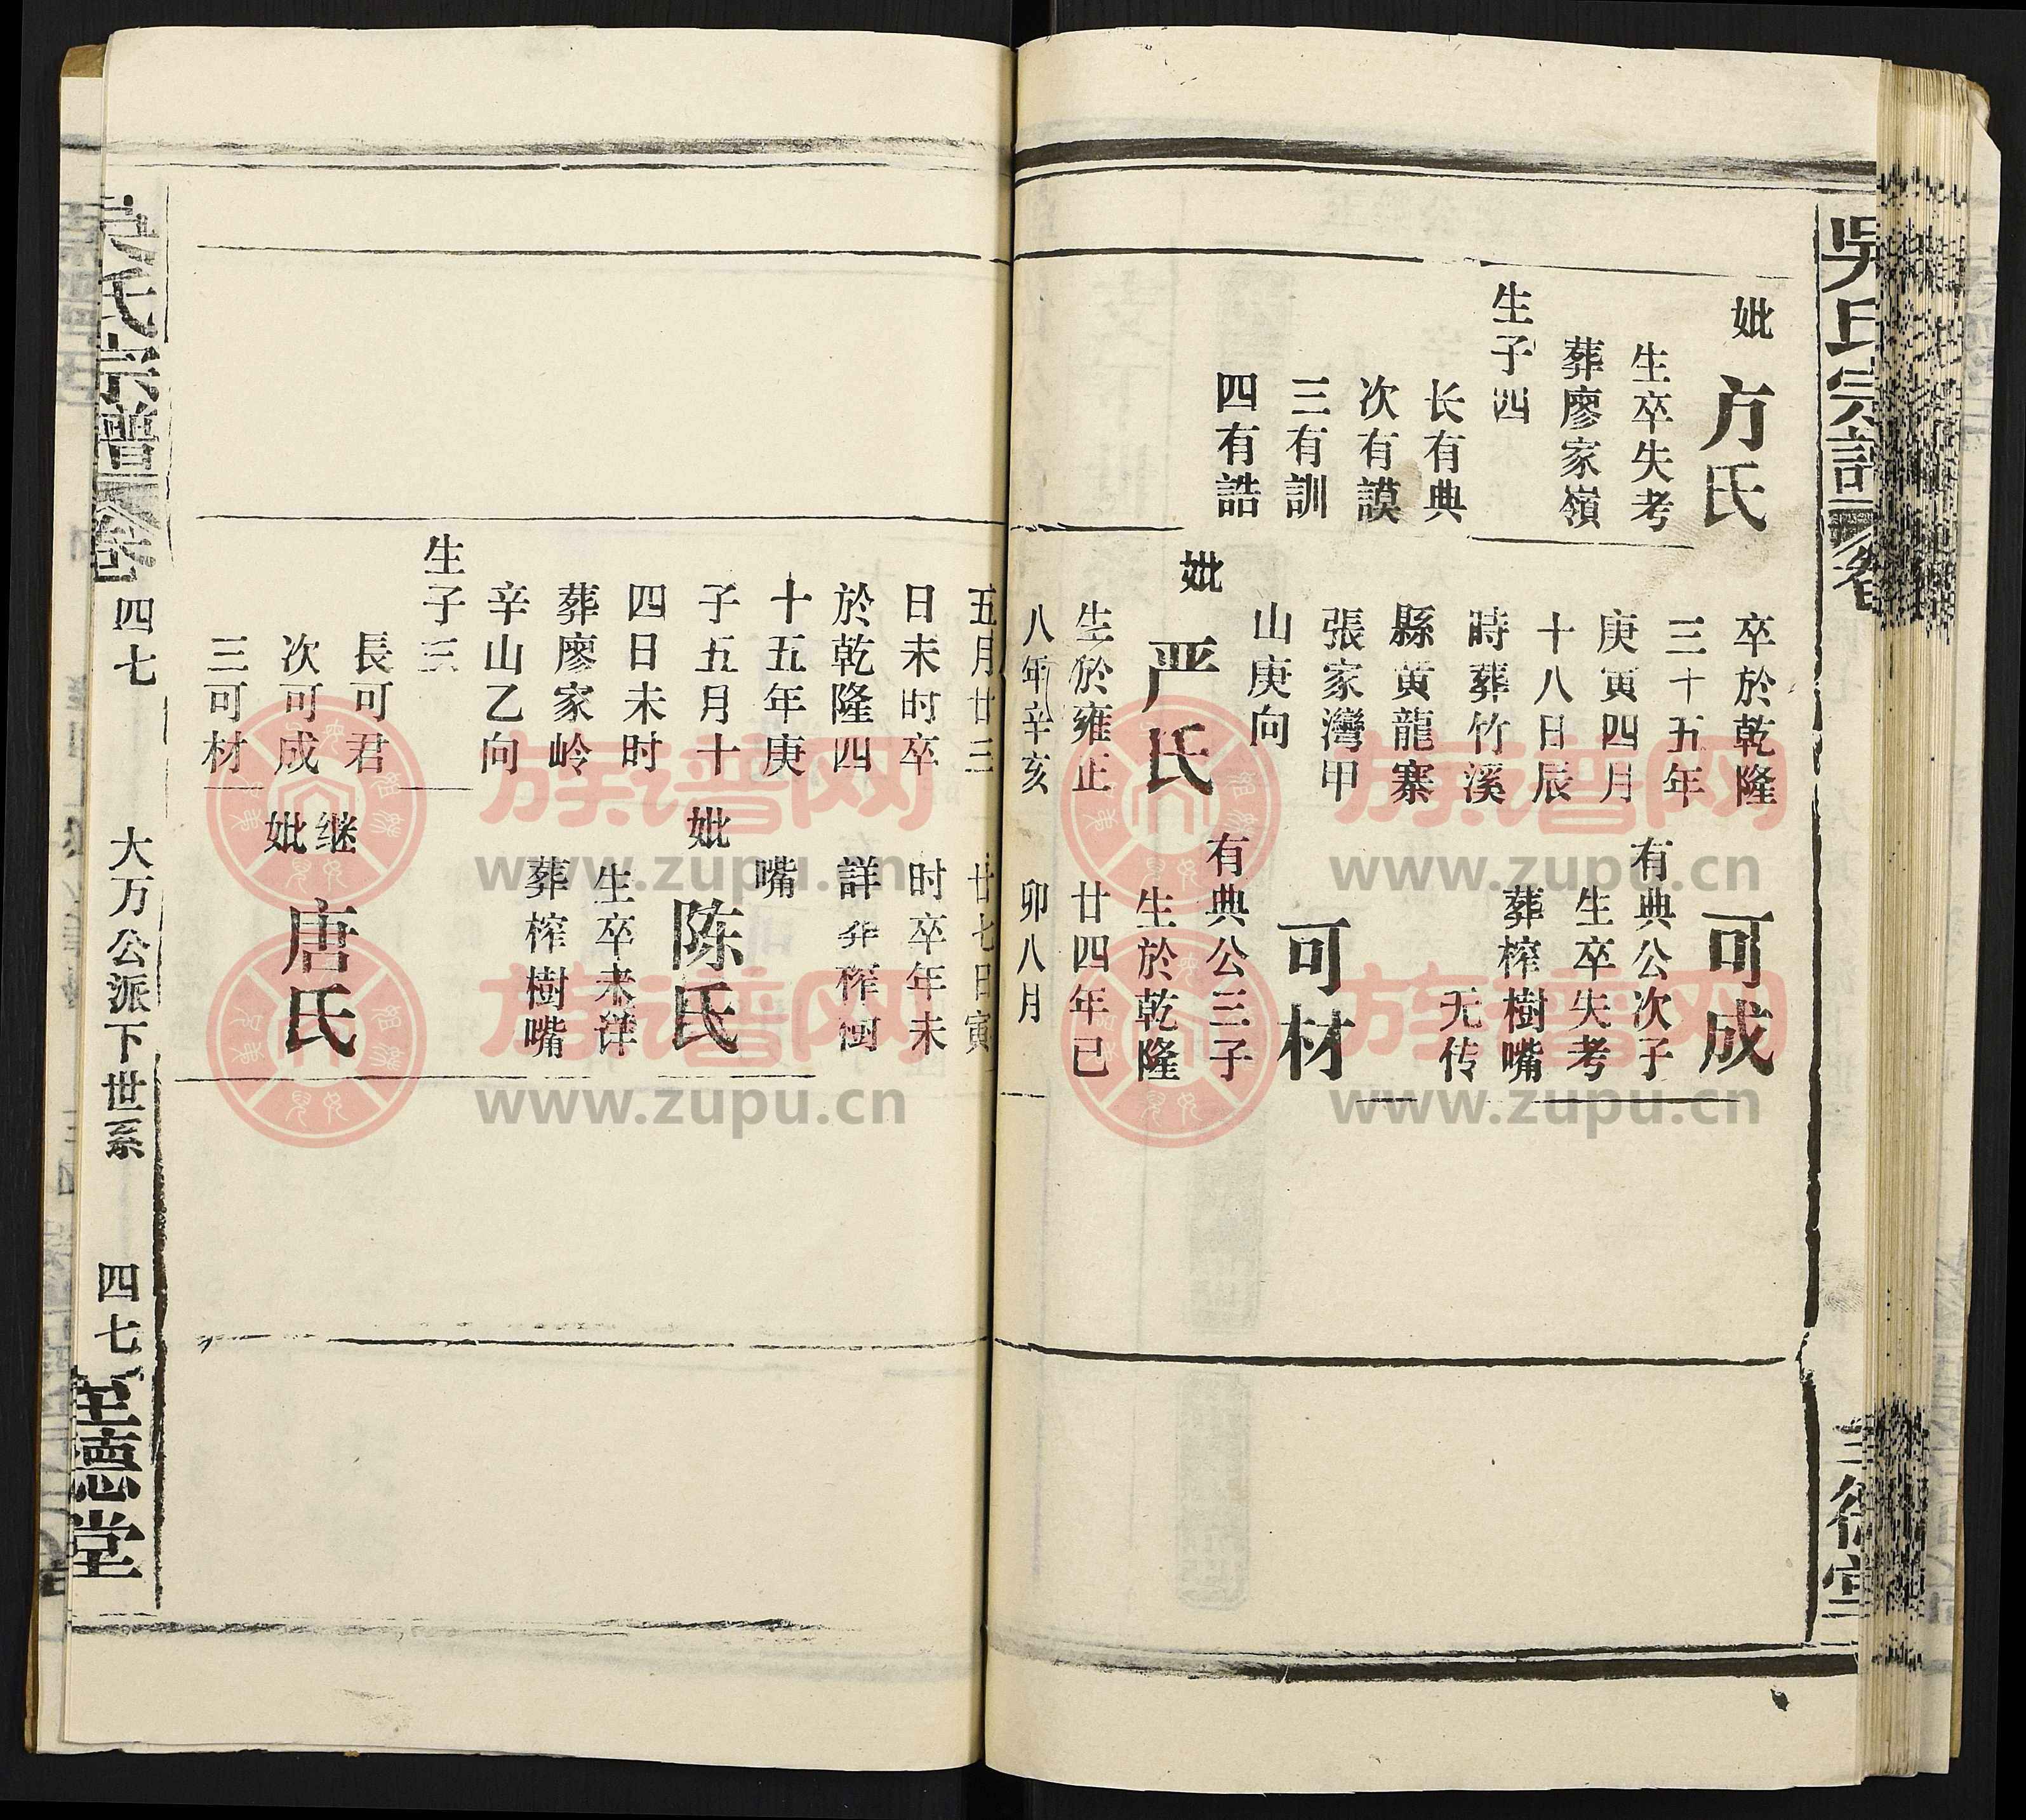 吳氏宗譜
卷
妣
方氏
生卒失考
葬廖家嶺
生子四
长有典
次有謨
三有訓
四有誥
卒於乾隆
三十五年
庚寅四月
十八日辰
時葬竹溪
縣黄龍寨
張家灣甲
山庚向
妣
严氏
生於雍正
八年辛亥
五月廿三
日未时卒
於乾隆四
十五年庚
子五月十
四日未时
葬廖家岭
辛山乙向
生子三
長可君
次可成
三可材
可成
有典公次子
生卒失考
葬榨樹嘴
无传
可材
有典公三子
生於乾隆
廿四年已
卯八月
廿七日寅
时卒年未
詳
嘴
妣
陈氏
生卒未详
葬榨樹嘴
继
妣
唐氏
氏宗譜
四七
大万公派下世系
四七
至德堂
族谱网
www.zupu.cn
族谱网
www.zupu.cn
族谱网
www.zupu.cn
族谱网
www.zupu.cn